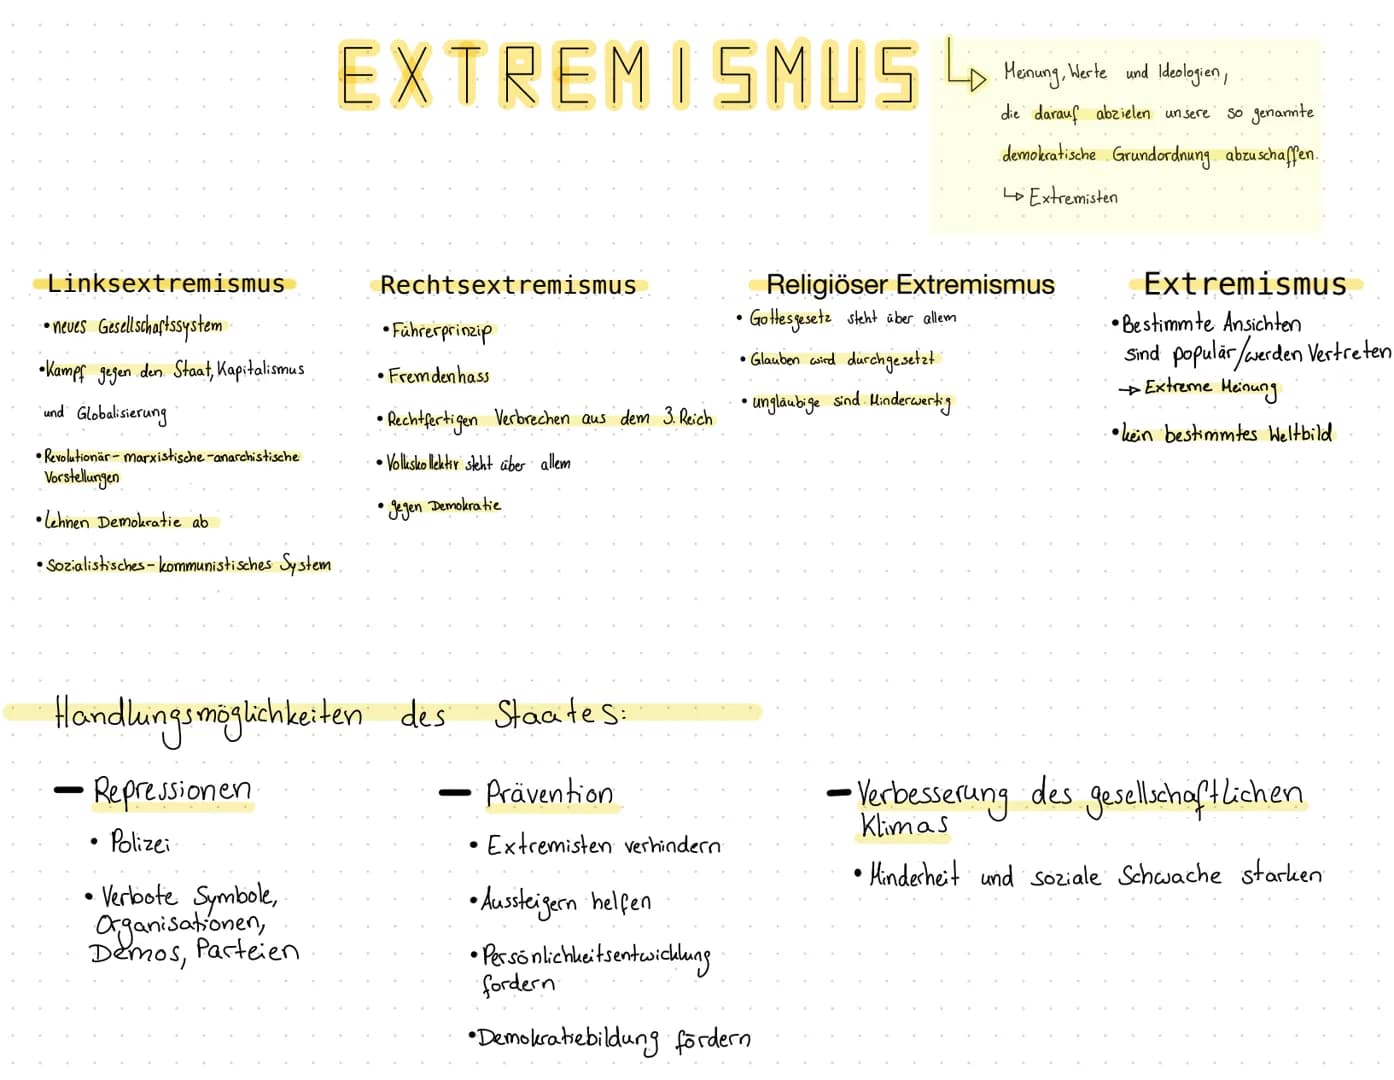 EXTREMISMUS
Meinung, Werte und Ideologien,
die darauf abzielen unsere so genannte
demokratische Grundordnung abzuschaffen.
↳ Extremisten
Linksextremismus
• neues Gesellschaftssystem
• Kampf gegen den Staat, Kapitalismus
und Globalisierung
• Revolutionär-marxistische-anarchistische
Vorstellungen
• Lehnen Demokratie ab
• Sozialistisches-kommunistisches System
Rechtsextremismus
• Führerprinzip
• Fremdenhass
• Rechtfertigen Verbrechen aus dem 3. Reich
• Volkskollektiv steht über allem
• gegen Demokratie
Religiöser Extremismus
• Gottesgesetz steht über allem
• Glauben wird durchgesetzt
• ungläubige sind Minderwertig
Extremismus
• Bestimmte Ansichten
sind populär/werden Vertreten
→ Extreme Meinung
• kein bestimmtes Weltbild
Handlungsmöglichkeiten des Staates:
– Repressionen
• Polizei
• Verbote Symbole,
Organisationen,
Demos, Parteien
– Prävention
• Extremisten verhindern
• Aussteigern helfen
• Persönlichkeitsentwicklung
fordern
• Demokratiebildung fördern
– Verbesserung des gesellschaftlichen
Klimas
• Minderheit und soziale Schwache starken